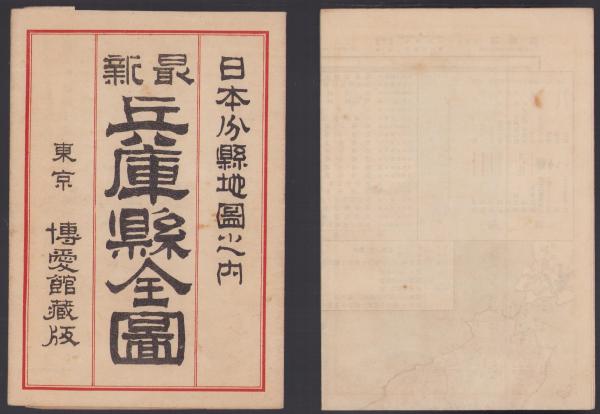 日本分縣地圖之内
最新
兵庫縣全圖
東京 博愛館藏版